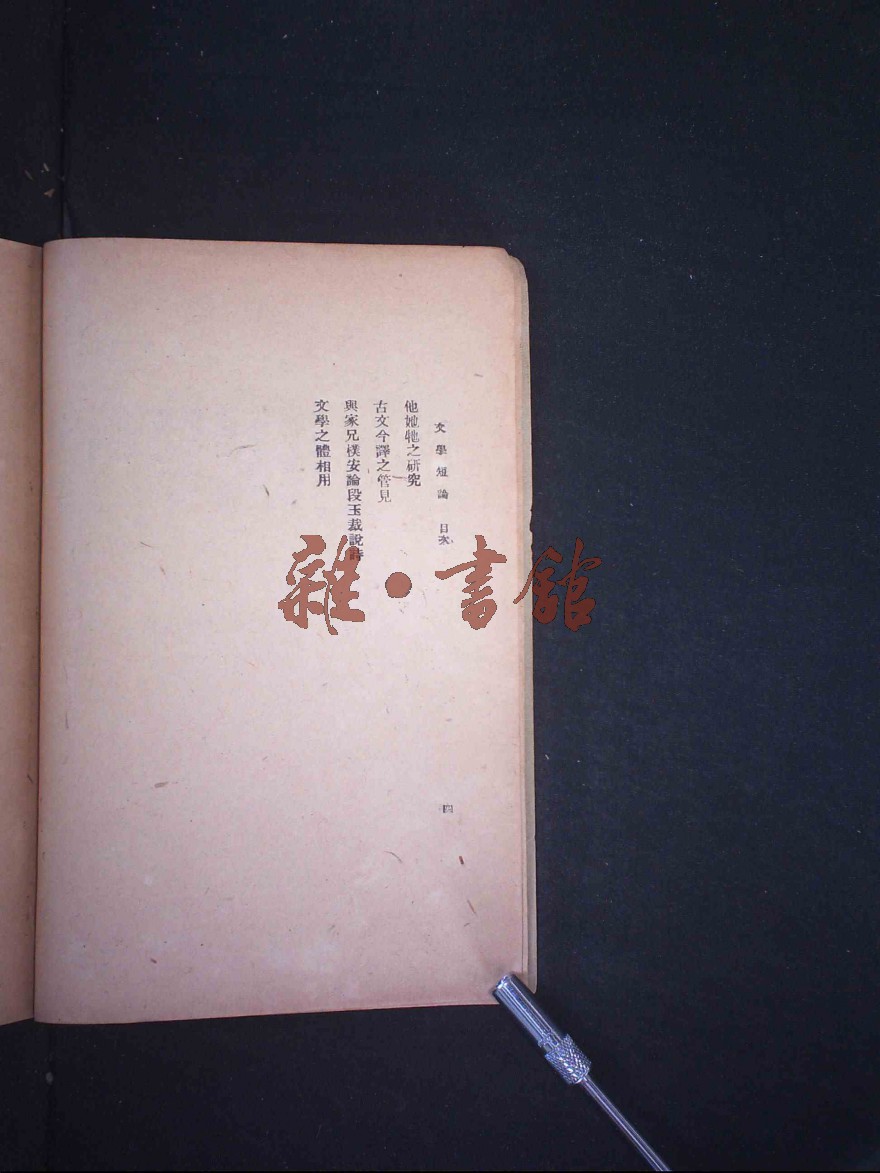 文學短論 目次
他她牠之研究
古文今譯之管見
與家兄樸安論段玉裁說詩
文學之體相用
四
雜·書館